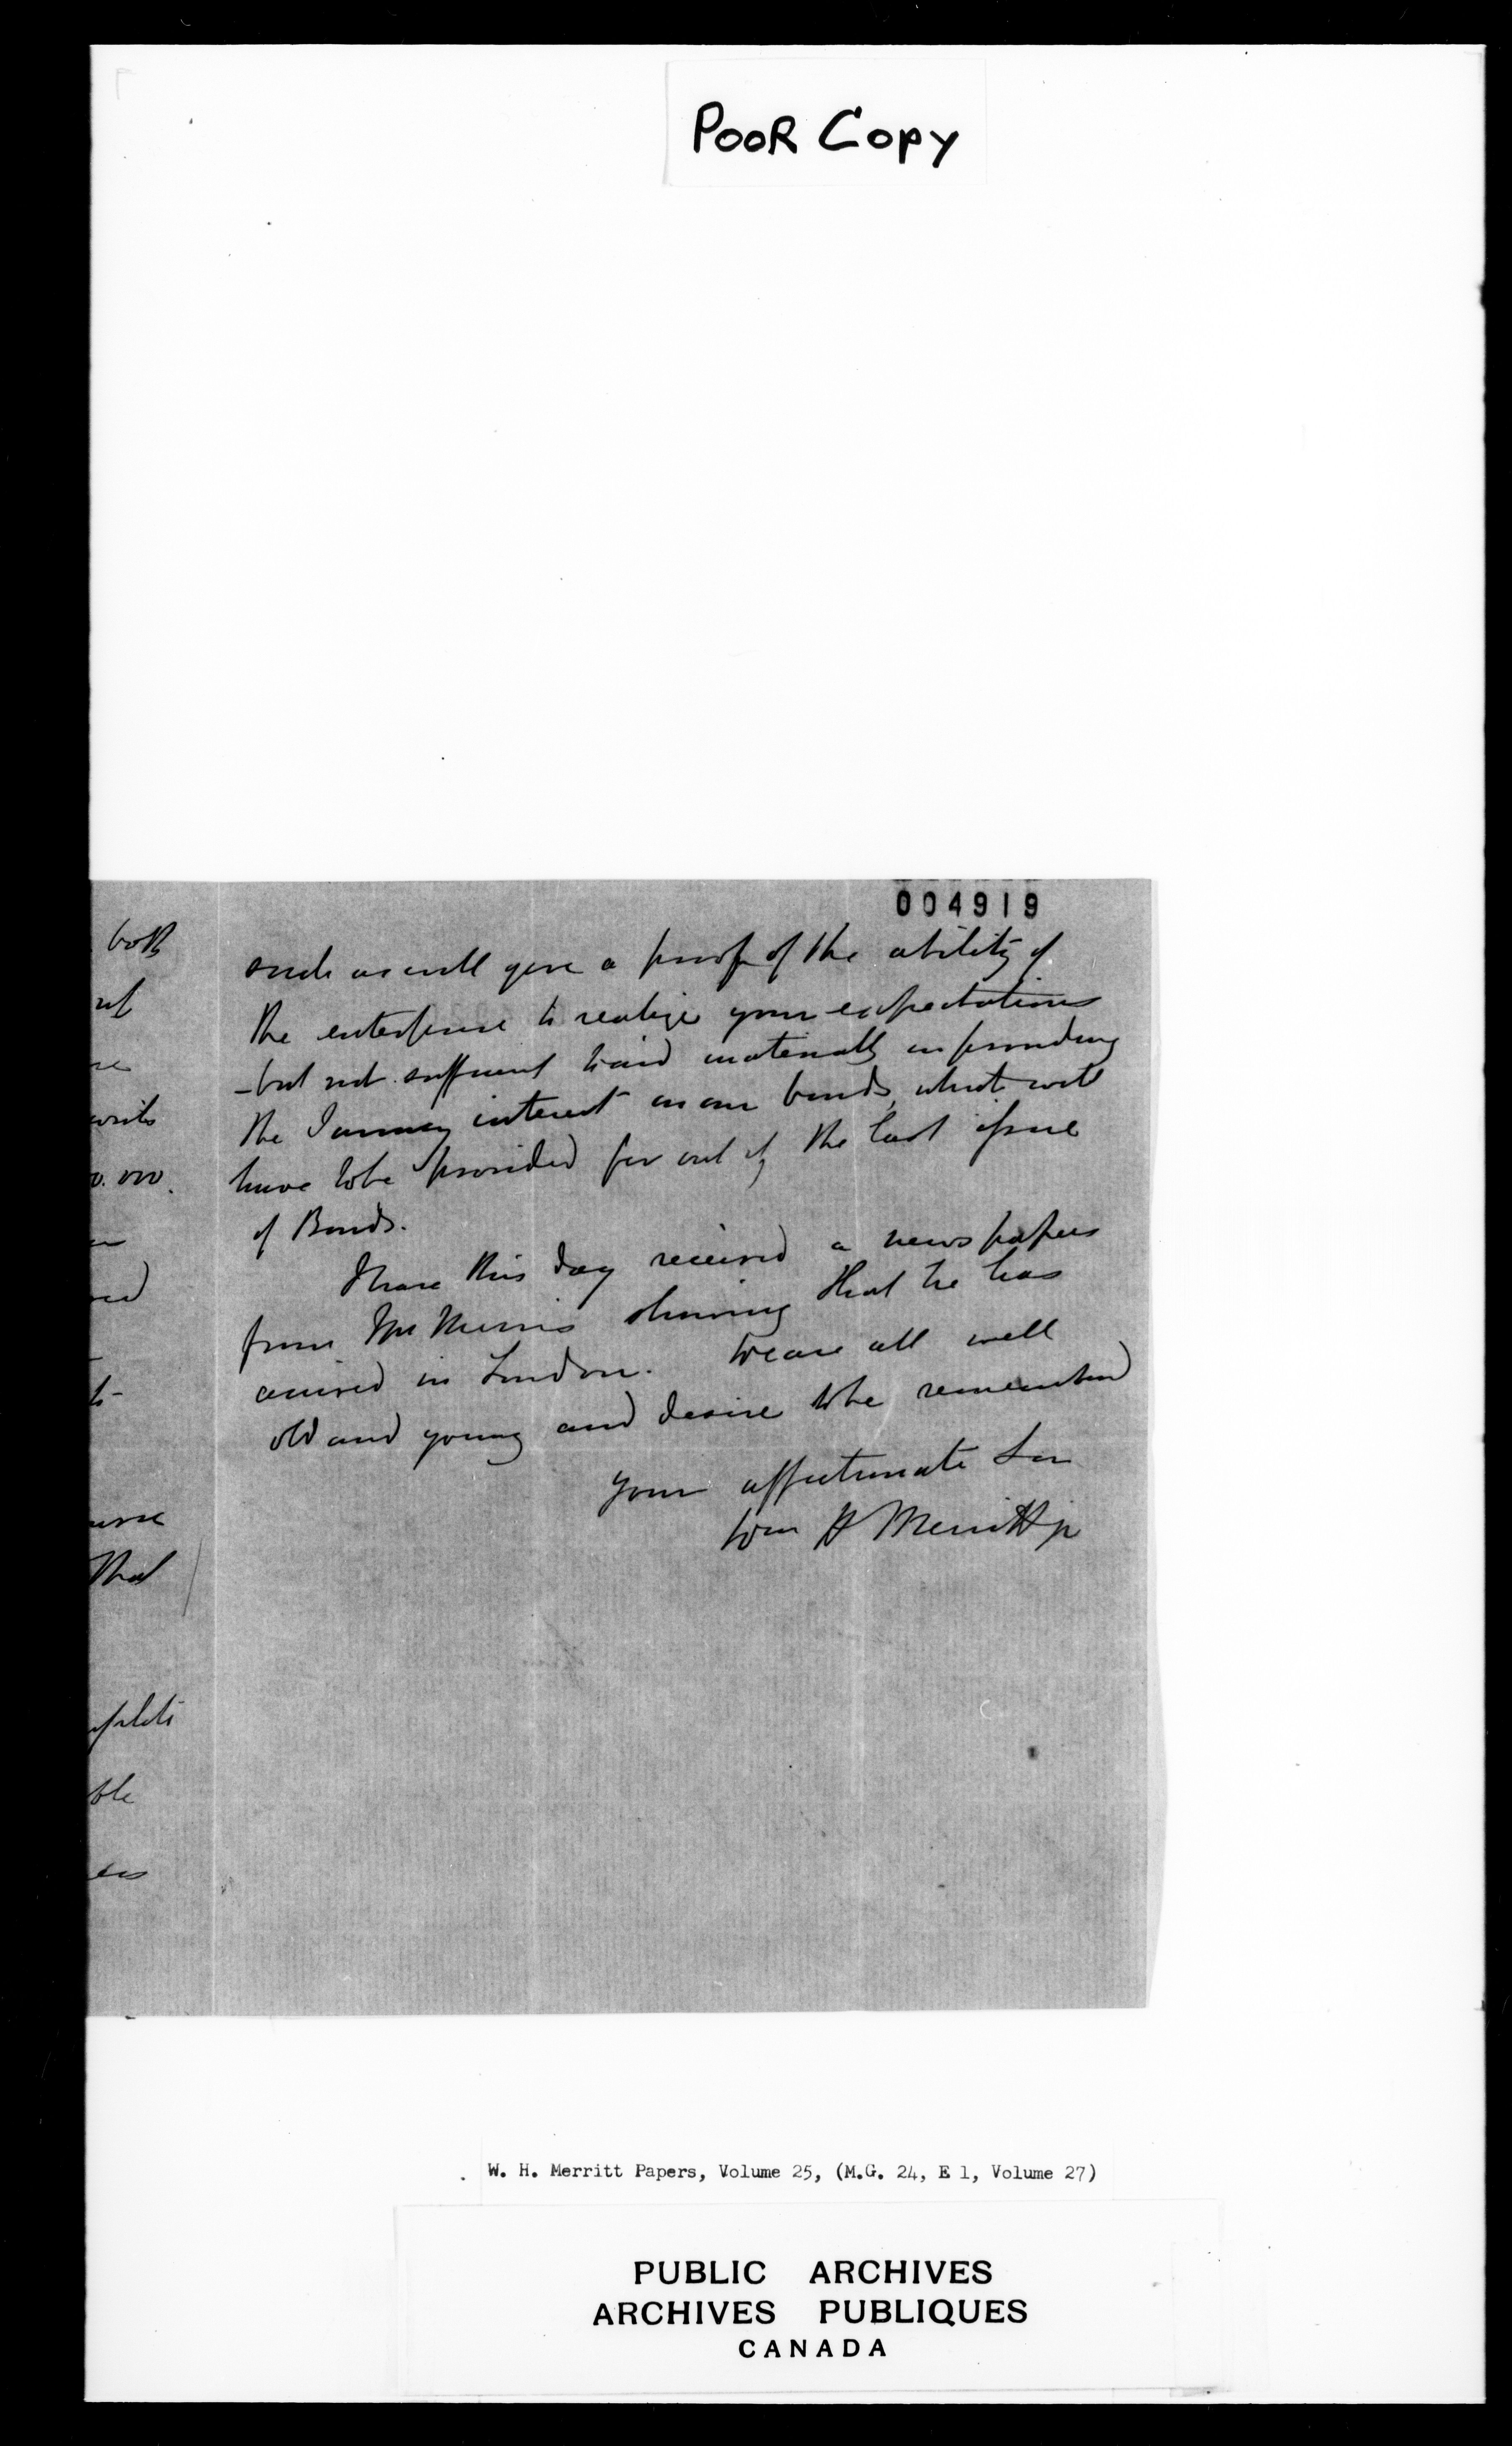 POOR COPY
004919
such as will give a proof of the ability of
the enterprise to realize your expectations
- but not sufficient to aid materially in providing
the January interest on our bonds, which will
have to be provided for out of the last issue
of Bonds.
I have this day received a news paper
from Mr shewing that he has
arrived in London. We are all well
old and young and desire to be remembered
Your affectionate Son
Wm H Merritt jr
both
of
writs
0.000.
ed
to
that
ble
W. H. Merritt Papers, Volume 25, (M.G. 24, E 1, Volume 27)
PUBLIC ARCHIVES
ARCHIVES PUBLIQUES
CANADA